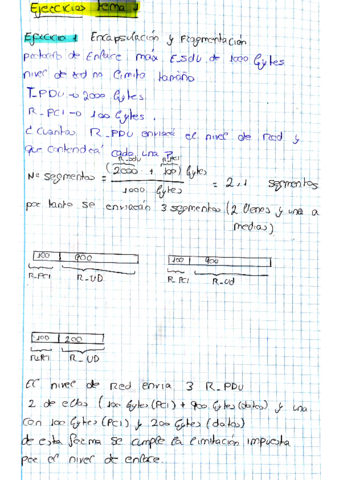 Ejercicios tema 1
Ejercicio 1 Encapsulación y fragmentación
protocolo de Enlace máx E_SDU de 1000 bytes
nivel de red no limita tamaño
T_PDU → 2000 bytes
R_PCI → 100 bytes.
¿Cuantas R_PDU enviará el nivel de red y
que contendrá cada una?
R_SDU R_PCI
Nº segmentos = (2000 + 100) bytes / 1000 bytes = 2,1 segmentos
por tanto se enviarán 3 segmentos (2 llenos y uno a
medias)
100 900 100 900
R_PCI R_UD R_PCI R_UD
100 200
R_PCI R_UD
El nivel de Red envia 3 R_PDU
2 de ellas (100 bytes (PCI) + 900 bytes (datos) y una
con 100 bytes (PCI) y 200 bytes (datos)
de esta forma se cumple la limitación impuesta
por el nivel de enlace.